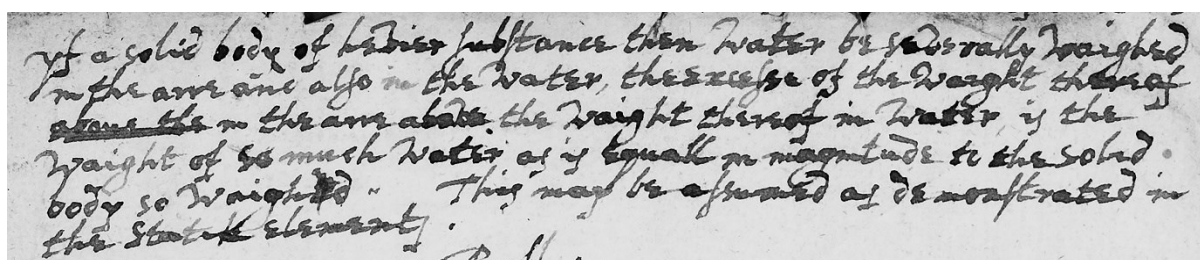 yf a solid body of hevier substance then water be severally waighed
in the ayre and also in the water, the excesse of the waight thereof
above the in the ayre above the waight thereof in water, is the
waight of so much water, as is equall in magnitude to the solid
body so waighed. This may be assumed as demonstrated in
the statik elements.